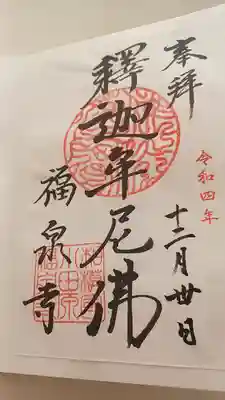 奉拜
令和四年
十二月卅日
釋迦牟尼佛
福泉寺